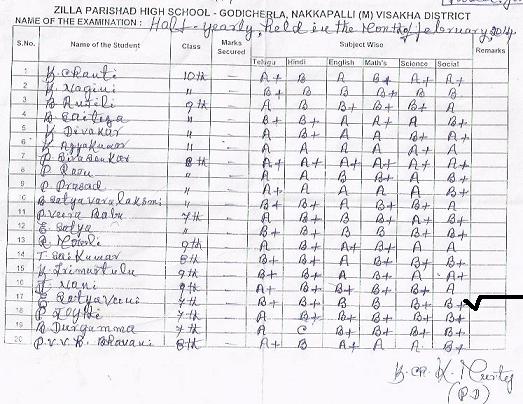 ZILLA PARISHAD HIGH SCHOOL - GODICHERLA, NAKKAPALLI (M) VISAKHA DISTRICT
NAME OF THE EXAMINATION : Half-yearly, held in the Month of february, 2014
S.No. Name of the Student Class Marks Secured Subject Wise Remarks
Telugu Hindi English Math's Science Social
1 K. Chanti 10th — A+ B A B+ A+ A+
2 K. Nagini " — B+ B B B+ B B
3 B — 9th — A B B+ B+ B+ A
4 B " — B+ B+ A A A B+
5 K. Divakar " — A A B+ B+ A A+
6 K. Ayyakumar " — A A A A A A
7 P. Sivasankar 8th — A+ A+ A+ A+ A+ A+
8 P. Ramu " — A A B+ B+ A B+
9 P. Prasad " — A+ A A A A B+
B. Satyavaralakshmi " — B+ B+ A B+ A B+
11 P. Veera Babu 7th — A B+ B+ A B+ A
12 E. Satya " — B+ B B+ B+ B+ B+
13 R. 9th — A B+ A+ B+ A A
14 T. Sai Kumar 8th — B+ B+ B+ B+ B+ B+
15 K. Srimurtulu 9th — B+ B+ A B+ A A+
9th — A B+ B+ B+ B+ A
17 E. Satyaveni 7th — B+ B+ B B B+ B+
18 P. 7th — A B+ B+ B+ B+ B+
19 B. Durgamma 7th — A C B+ B+ B+ B+
20 P.V.V.B. Bhavani 8th — A+ B A+ A A B+
K. Murty
(P.D)